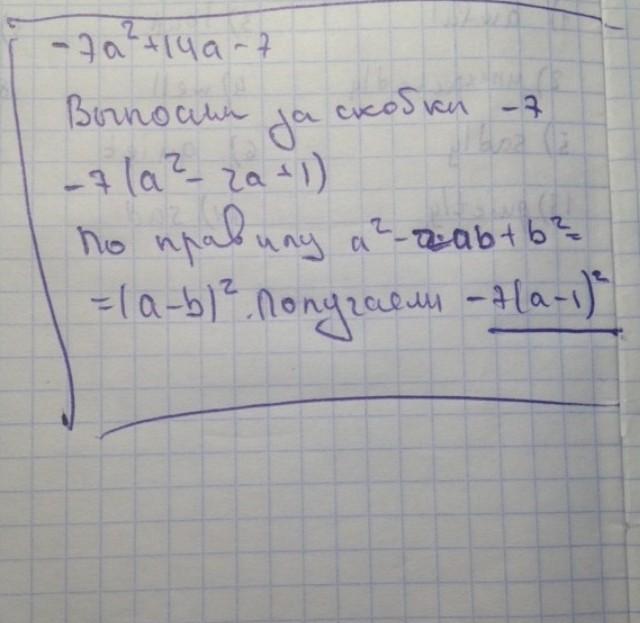 -7a²+14a-7
Выносим за скобки -7
-7(a²-2a+1)
По правилу a²-2ab+b²=
=(a-b)². Получаем -7(a-1)²